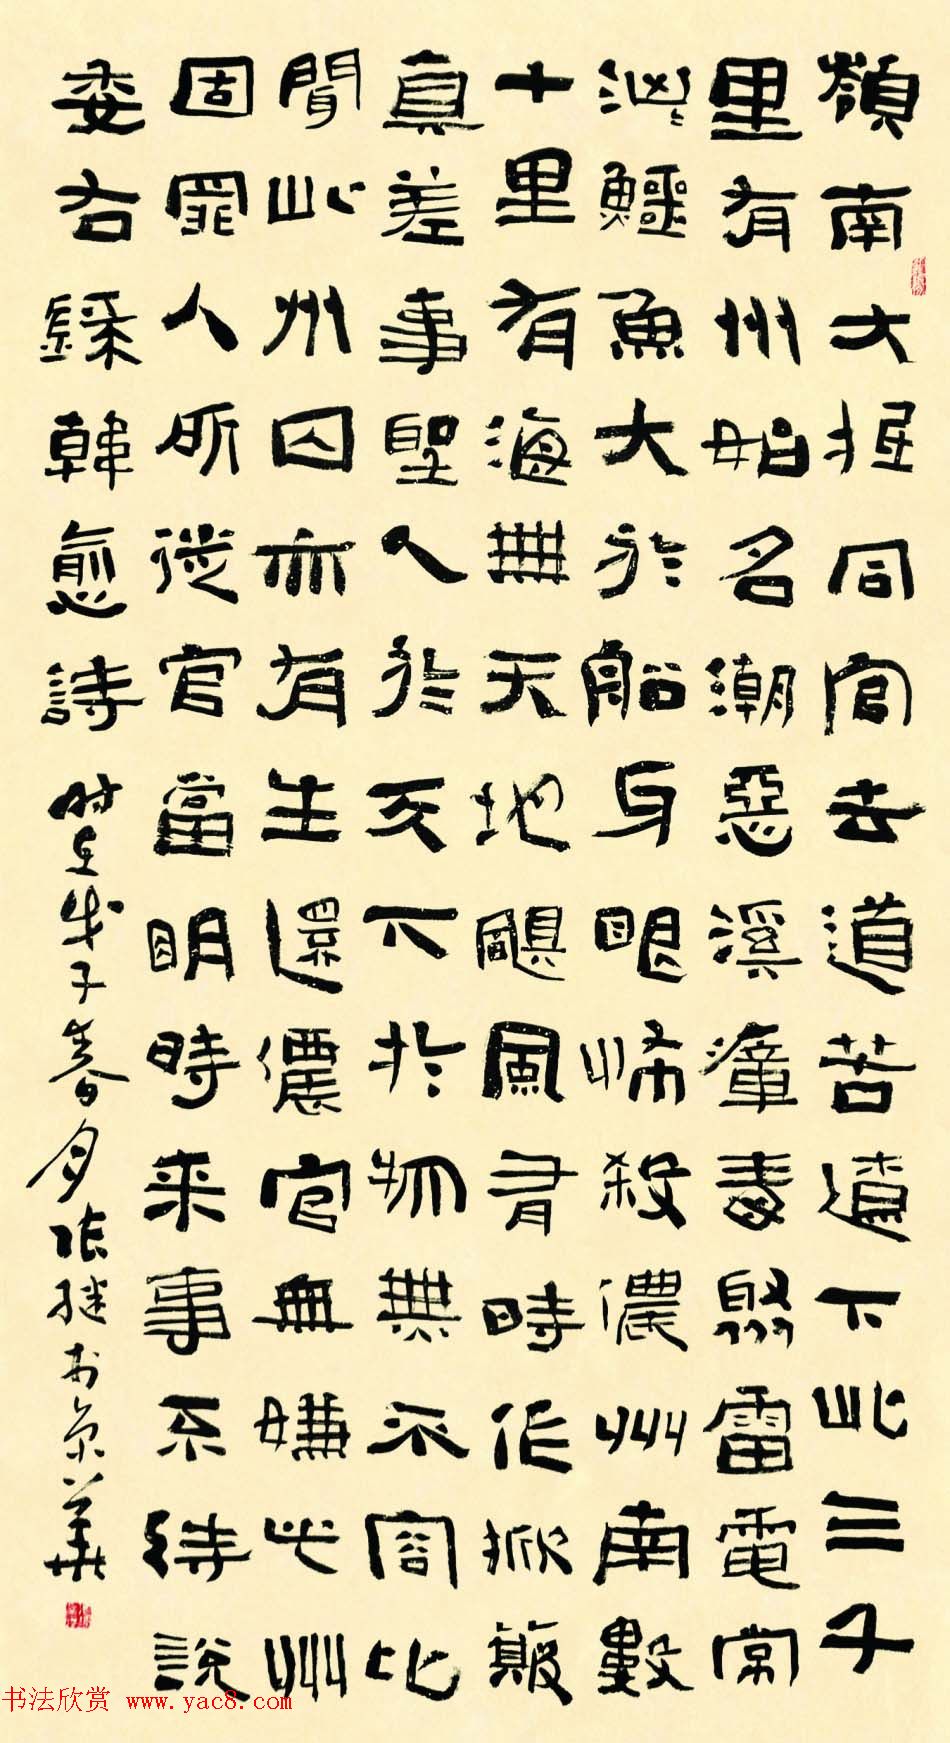 嶺南大抵同官去道苦遼下此三千
里有州始名潮惡溪瘴毒聚雷電常
洶〻鱷魚大於船牙眼怖殺儂州南數
十里有海無天地颶風有時作掀簸
真差事聖人於天下於物無不容比
聞此州囚亦有生還儂官無嫌此州
固罪人所徙官當明時来事不待說
委右録韓愈詩 时在戊子春月张继於京華
书法欣赏 www.yac8.com